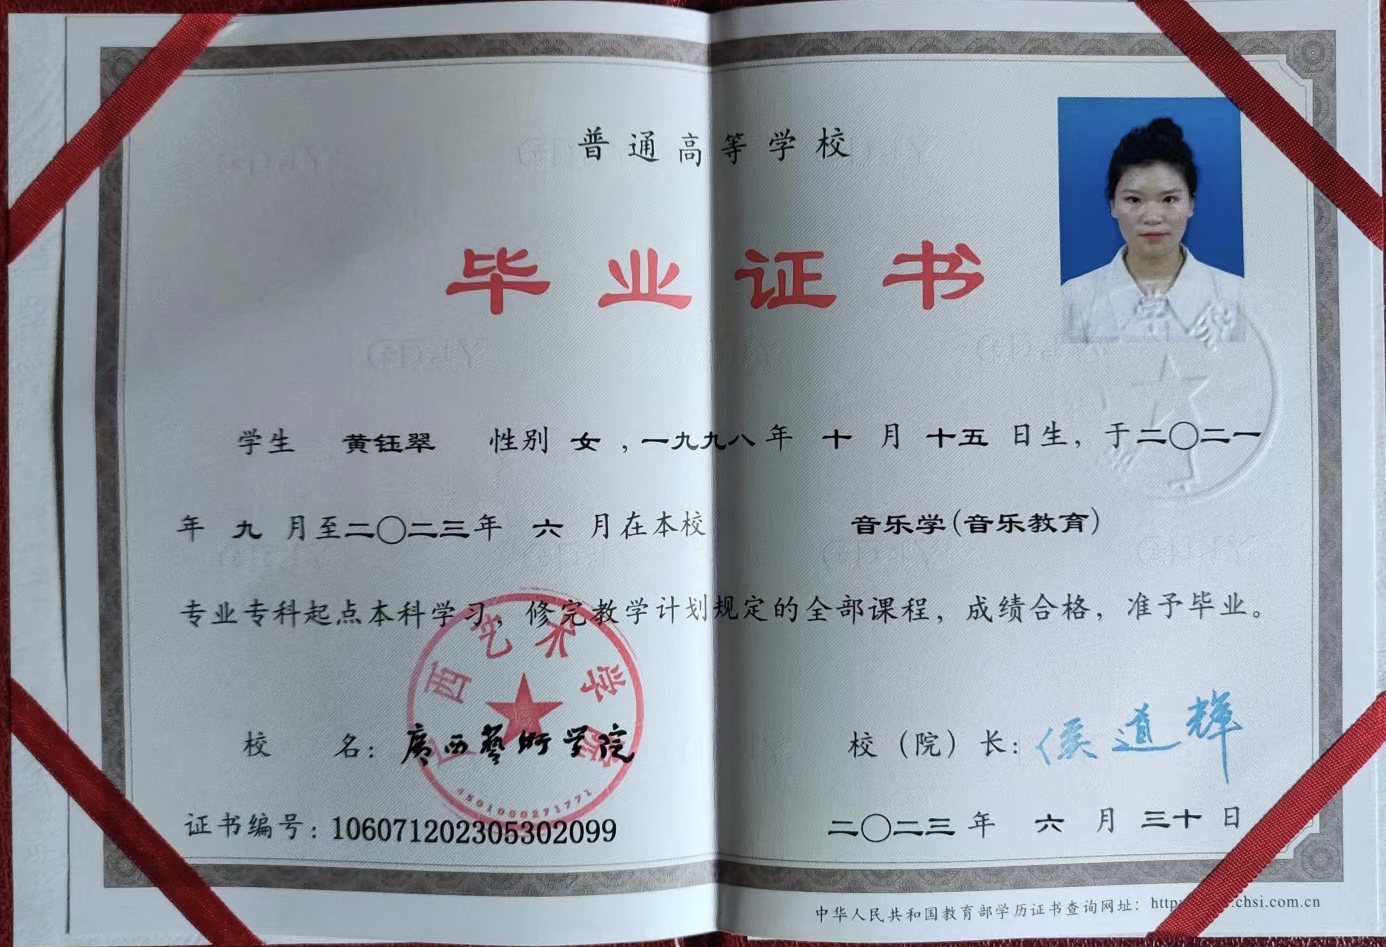 普通高等学校
毕业证书
学生 黄钰翠 性别 女，一九九八年 十 月 十五 日生，于二〇二一
年 九 月至二〇二三年 六 月在本校 音乐学(音乐教育)
专业专科起点本科学习，修完教学计划规定的全部课程，成绩合格，准予毕业。
西艺术学院
校 名：廣西藝術学院
4501000271771
校（院）长：侯道辉
证书编号：106071202305302099
二〇二三 年 六 月 三十 日
中华人民共和国教育部学历证书查询网址：http chsi.com.cn